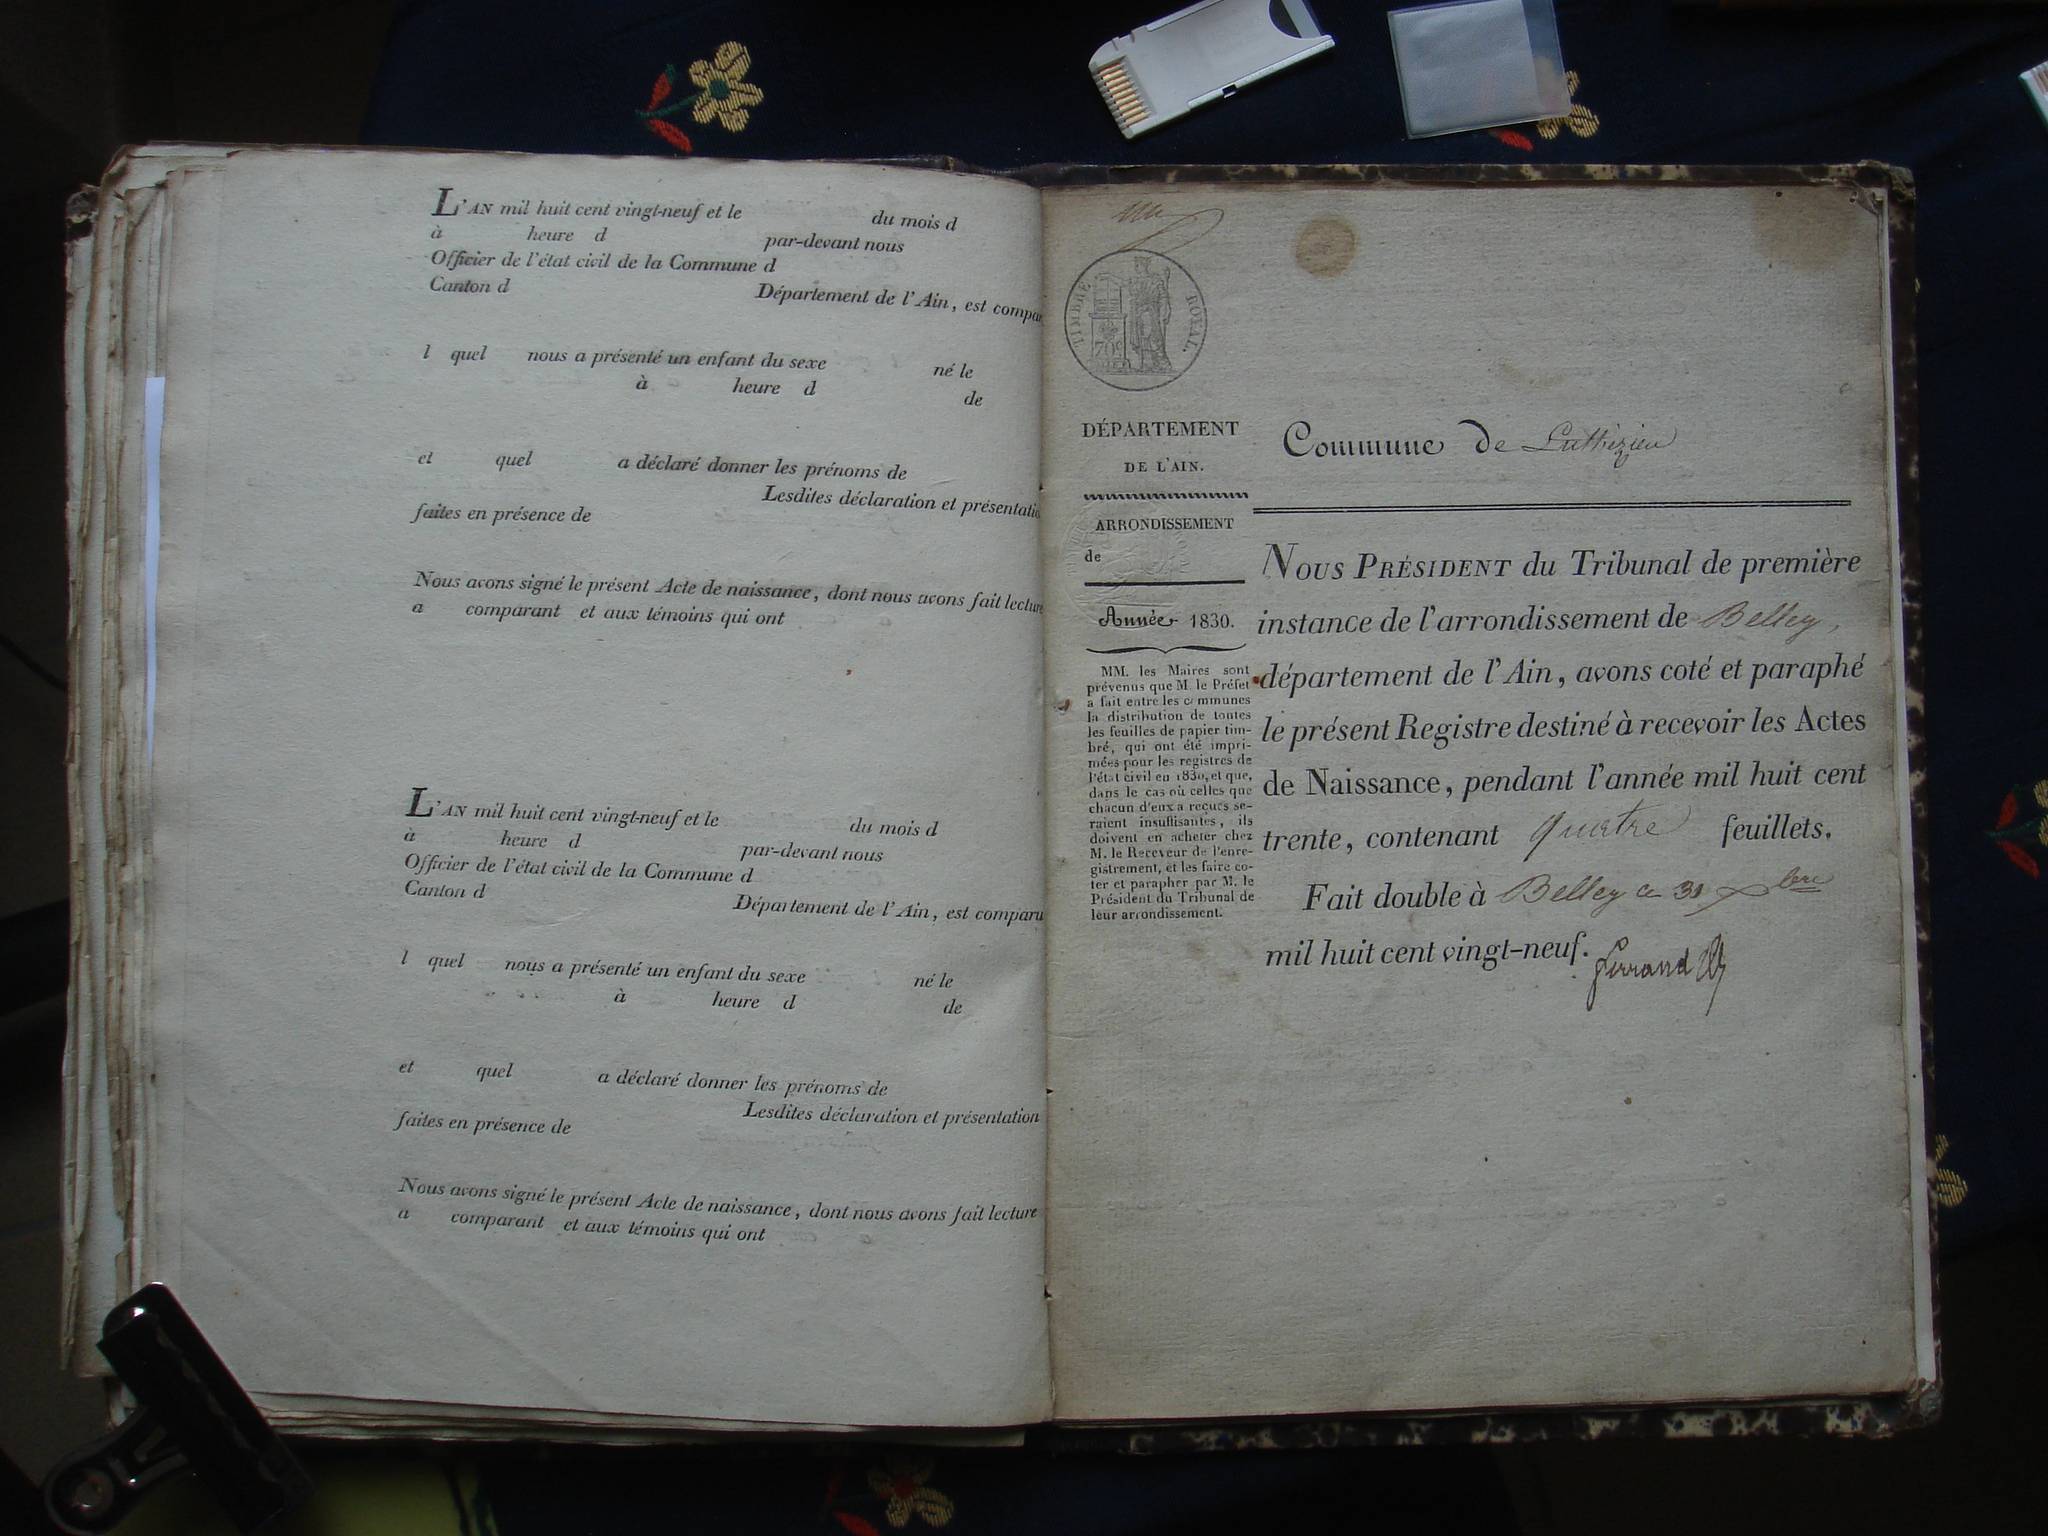 L'AN mil huit cent vingt-neuf et le du mois d
à heure d par-devant nous
Officier de l'état civil de la Commune d
Canton d Département de l'Ain, est compar
l quel nous a présenté un enfant du sexe né le
à heure d de
et quel a déclaré donner les prénoms de
Lesdites déclaration et présentatio
faites en présence de
Nous avons signé le présent Acte de naissance, dont nous avons fait lecture
a comparant et aux témoins qui ont
L'AN mil huit cent vingt-neuf et le du mois d
à heure d par-devant nous
Officier de l'état civil de la Commune d
Canton d Département de l'Ain, est comparu
l quel nous a présenté un enfant du sexe né le
à heure d de
et quel a déclaré donner les prénoms de
Lesdites déclaration et présentation
faites en présence de
Nous avons signé le présent Acte de naissance, dont nous avons fait lecture
a comparant et aux témoins qui ont
TIMBRE ROYAL.
DÉPARTEMENT
DE L'AIN.
ARRONDISSEMENT
de
Année 1830.
MM. les Maires sont
prévenus que M. le Préfet
a fait entre les communes
la distribution de toutes
les feuilles de papier tim-
bré, qui ont été impri-
mées pour les registres de
l'état civil en 1830, et que,
dans le cas où celles que
chacun d'eux a reçues se-
raient insuffisantes, ils
doivent en acheter chez
M. le Receveur de l'enre-
gistrement, et les faire co-
ter et parapher par M. le
Président du Tribunal de
leur arrondissement.
Commune de Luthézieu
NOUS PRÉSIDENT du Tribunal de première
instance de l'arrondissement de Belley,
département de l'Ain, avons coté et paraphé
le présent Registre destiné à recevoir les Actes
de Naissance, pendant l'année mil huit cent
trente, contenant quatre feuillets.
Fait double à Belley ce 31 xbre
mil huit cent vingt-neuf.